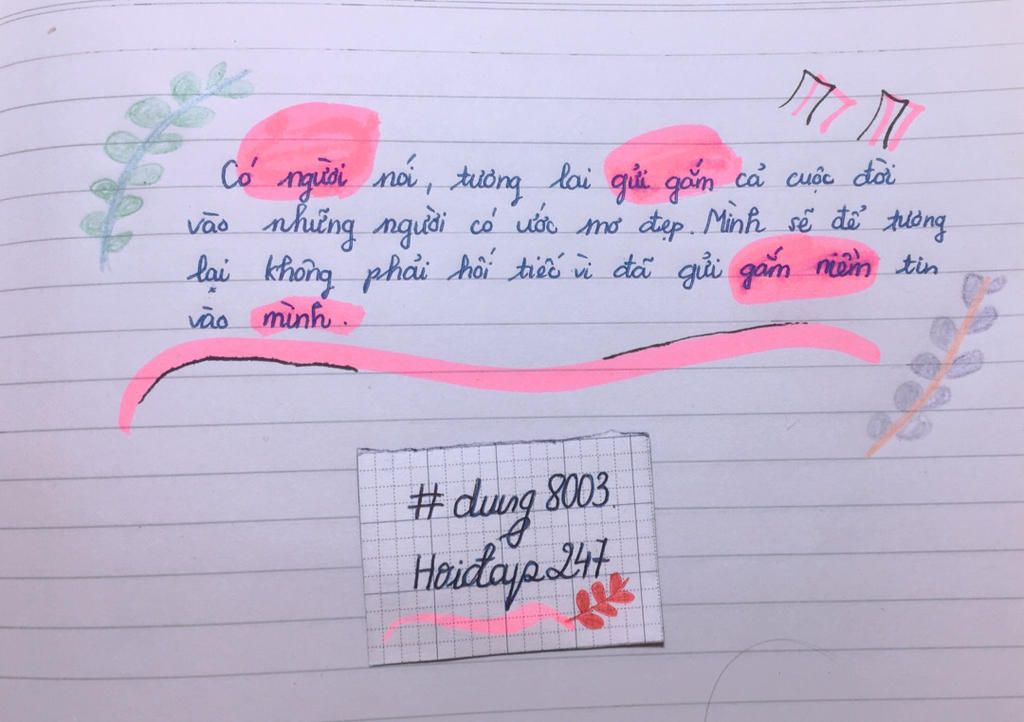 Có người nói, tương lai gửi gắm cả cuộc đời
vào những người có ước mơ đẹp. Mình sẽ để tương
lại không phải hối tiếc vì đã gửi gắm niềm tin
vào mình.
# dung 8003.
Hoidap247